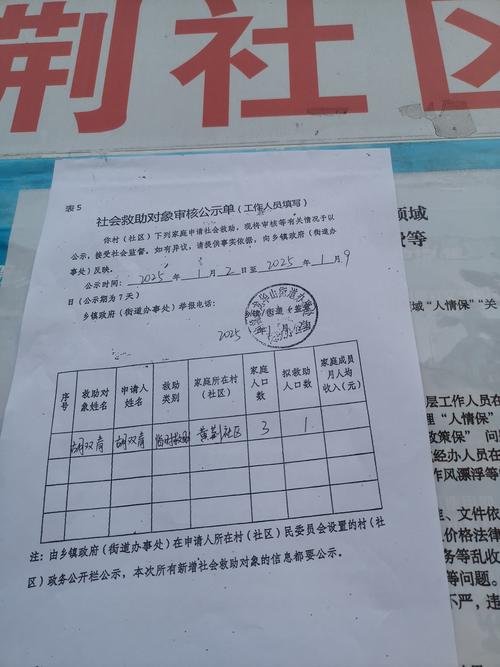 荆社区
表5
社会救助对象审核公示单（工作人员填写）
你村（社区）下列家庭申请社会救助。现将审核等有关情况予以
公示，接受社会监督。如有异议，请提供事实依据，向乡镇政府（街道办
事处）反映。
公示时间：2025年1月2日至2025年1月9
日（公示期为7天）
乡镇政府（街道办事处）举报电话：
乡镇/街道（盖章）
2025年1月
序号 救助对象姓名 申请人姓名 救助类别 家庭所在村（社区） 家庭人口数 拟救助人口数 家庭成员月人均收入（元）
胡双育 胡双育 临时救助 黄荆社区 3 1
注：由乡镇政府（街道办事处）在申请人所在村（社区）民委员会设置的村（社
区）政务公开栏公示，本次所有新增社会救助对象的信息都要公示。
领域
等
域"人情保""关
层工作人员在
理"人情保"
政策保" 问
经办人员在
作风漂浮等
、文件依
价格法律
务等乱收
等问题。
不严，违